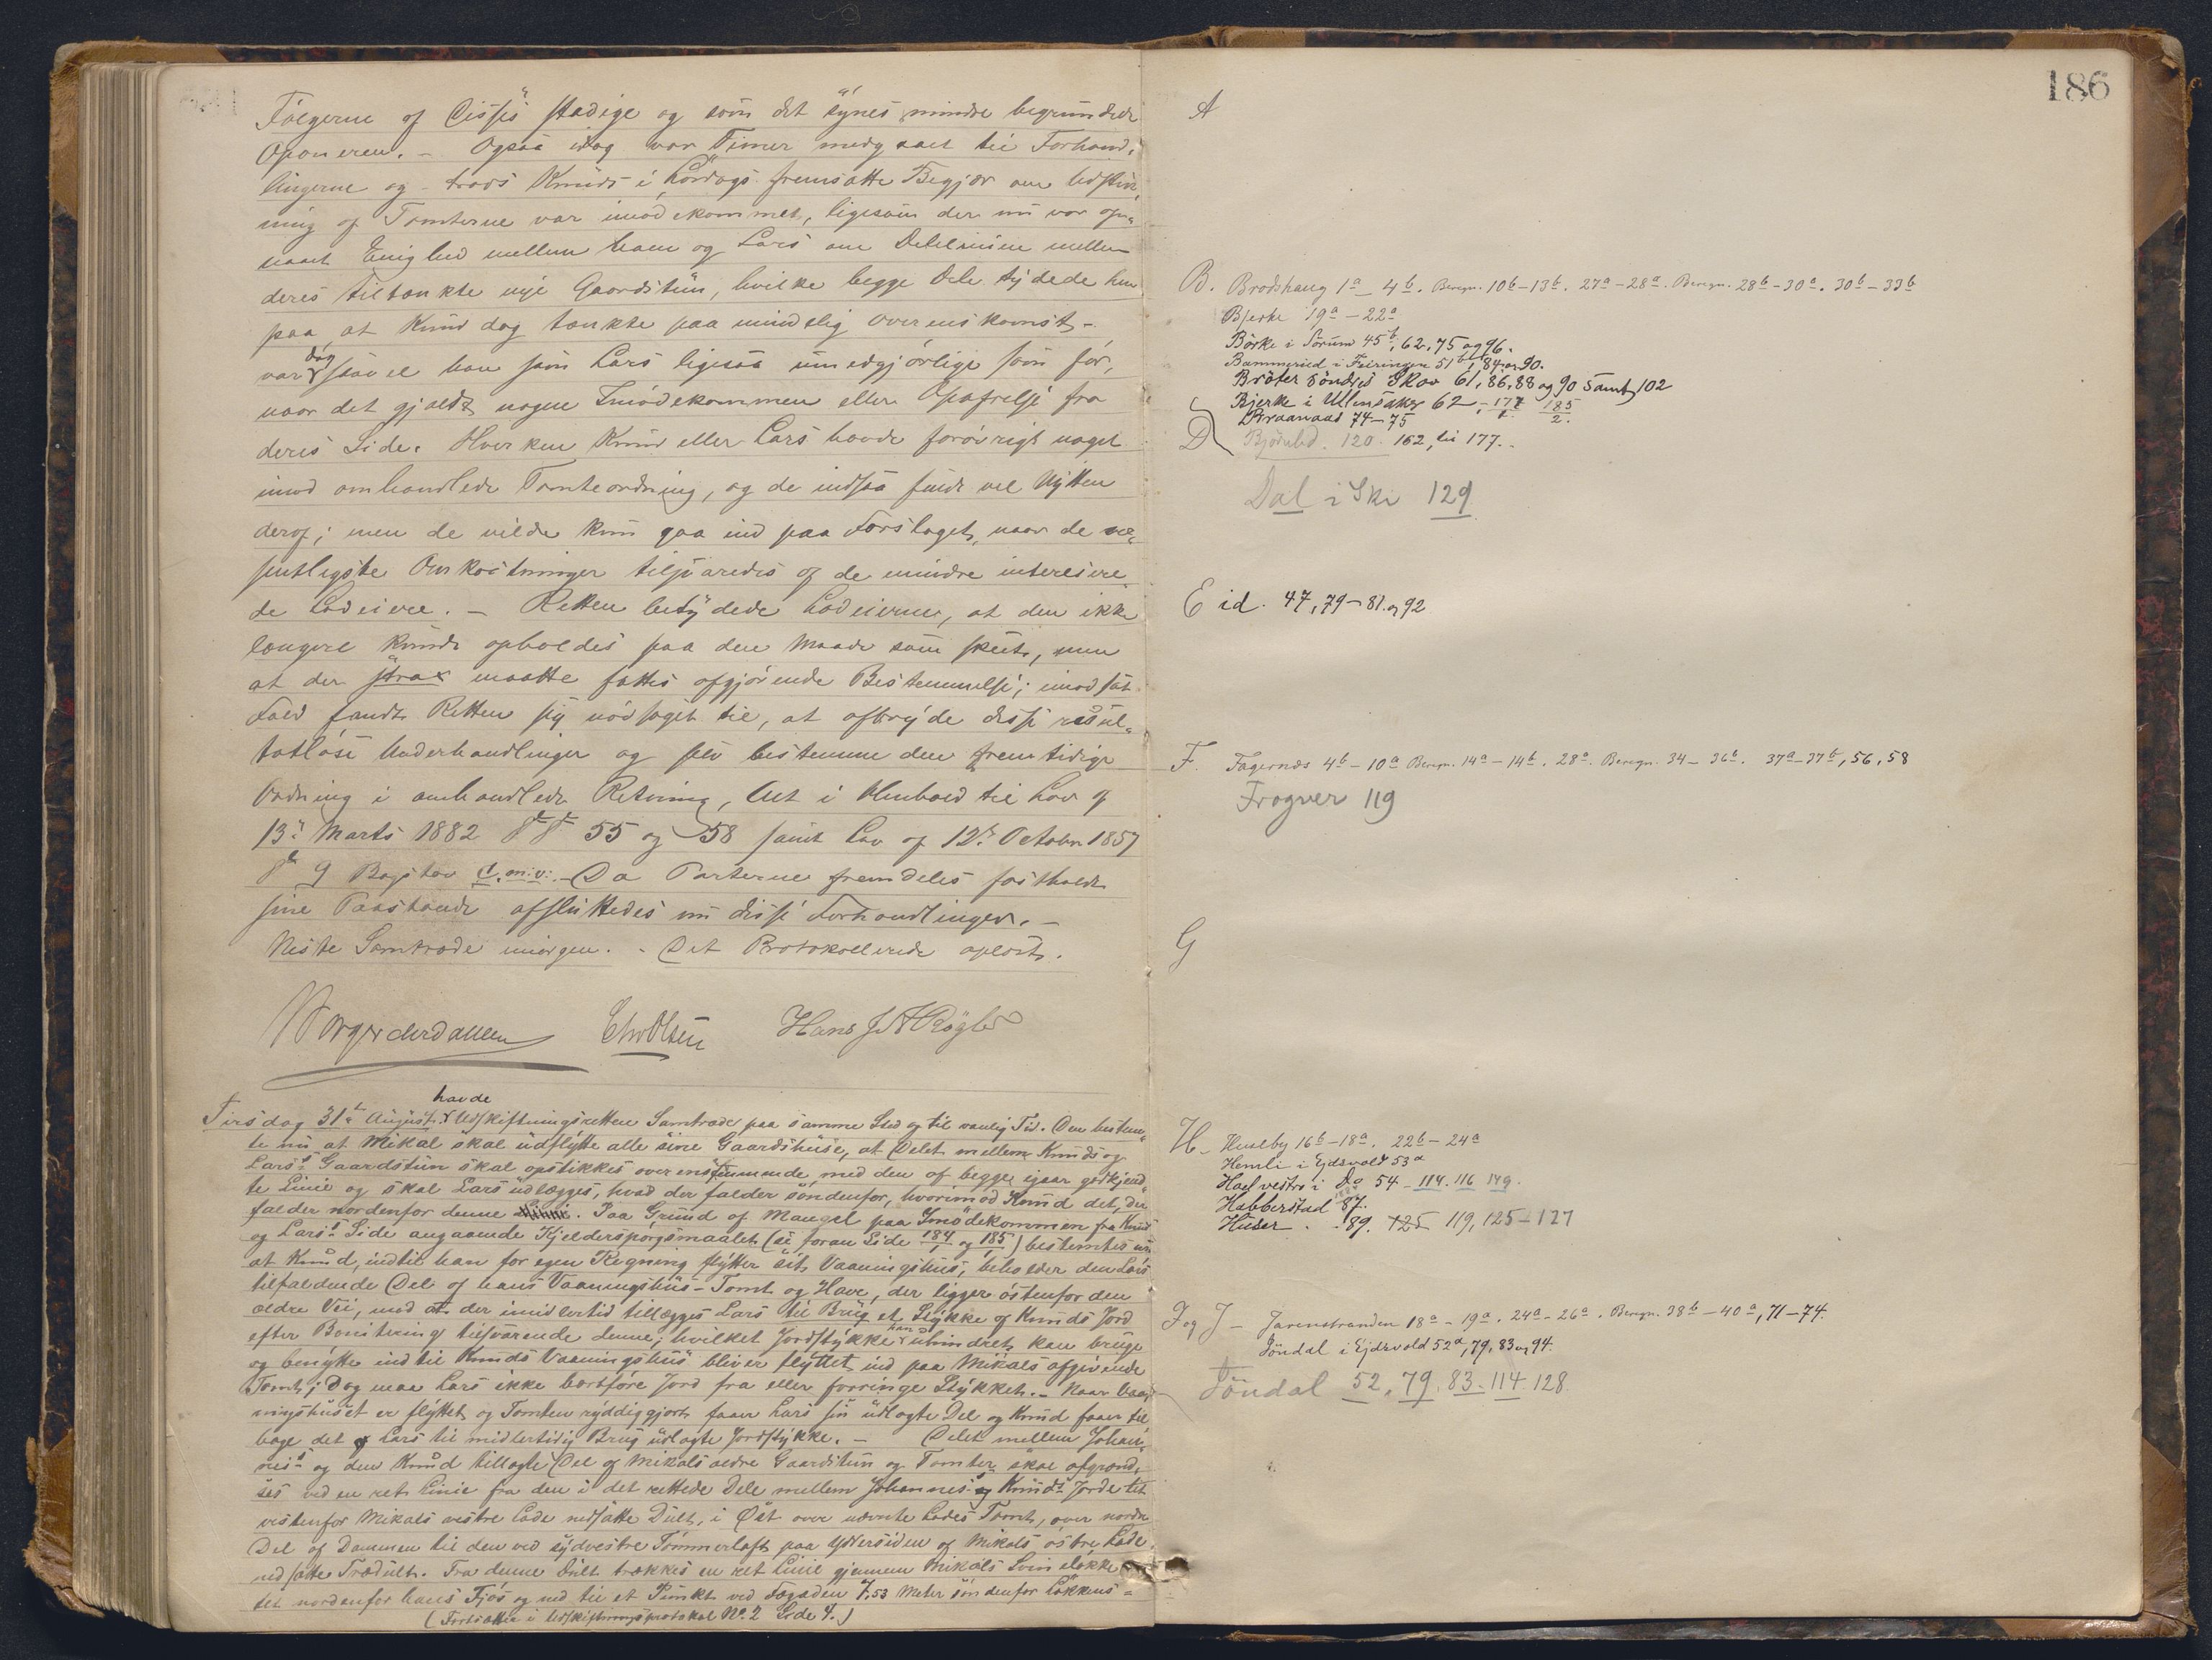 Følgerne af Disses stadige og som det synes mindre begrundede
Oponeren. – Ogsaa idag var Timer medgaaet til Forhand-
lingerne og – trods Knuds i Lørdags fremsatte Begjær om Udstik-
ning af Tomterne var imødekommet, ligesom der nu var op-
naaet Enighed mellem ham og Lars om Delelinien mellem
deres tiltænkte nye Gaardstun, hvilke begge Dele tydede hen
paa, at Knud dog tænkte paa mindelig Overenskomst, –
var dog saavel han som Lars ligesaa umedgjørlige som før,
naar det gjældt nogen Imødekommen eller Opofrelse fra
deres Side. Hverken Knud eller Lars havde forøvrigt noget
imod omhandlede Tomteordning, og de indsaa fuldt vel Nytten
deraf; men de vilde kun gaa ind paa Forslaget, naar de væ-
sentligste Omkostninger tilsvaredes af de mindre interesere-
de Lodeiere. – Retten betydede Lodeierne, at den ikke
længere kunde opholdes paa den Maade som skeet, men
at der strax maatte fattes afgjørende Bestemmelse; imodsat
Fald fandt Retten sig nødsaget til, at afbryde disse resul-
tatløse Underhandlinger og selv bestemme den fremtidige
Ordning i omhandlede Retning, Alt i Henhold til Lov af
13de Marts 1882 §§ 55 og 58 samt Lov af 12te October 1857
§ 9 Bogstav d. m: v: – Da Parterne fremdeles fastholdt
sine Paastande afsluttedes nu disse Forhandlinger. –
Neste Samtræde imorgen. – Det Protokollerede oplæst.
ChrOlsen Hans
havde
Tirsdag 31te August Udskiftningsretten Samtræde paa samme Sted og til vanlig Tid. Den bestem-
te nu at Mikal skal udflytte alle sine Gaardshuse, at Delet mellem Knuds og
Lars's Gaardstun skal opstikkes overensstemmende med den af begge igaar godkjend-
te Linie og skal Lars udlægges, hvad der falder søndenfor, hvorimod Knud det, der
falder nordenfor denne. Paa Grund af Mangel paa Imødekommen fra Knuds
og Lars's Side angaaende Kjelderspørgsmaalet (se foran Side 184/1 og 185/1) bestemtes nu
at Knud, indtil han for egen Regning flytter sit Vaaningshus, beholder den Lars
tilfaldende Del af hans Vaaningshus-Tomt og Have, der ligger østenfor den
ældre Vei, mod at der imidlertid tillægges Lars til Brug et Stykke af Knuds Jord
efter Bonitering tilsvarende denne; hvilket Jordstykke han uhindret kan bruge
og benytte indtil Knuds Vaaningshus bliver flyttet ind paa Mikals afgivende
Tomt; Dog maa Lars ikke bortføre Jord fra eller forringe Stykket. – Naar Vaa-
ningshuset er flyttet og Tomten ryddiggjort faaer Lars sin udlagte Del og Knud faaer til-
bage det Lars til midlertidig Brug udlagte Jordstykke. – Delet mellem Johan-
nes's og den Knud tillagte Del af Mikals ældre Gaardstun og Tomter skal afgrænd-
ses ved en ret Linie fra den i det rettede Dele mellem Johannes's og Knuds Jorde tæt
vestenfor Mikals vestre Lade nedsatte Dult, i Øst over nævnte Lades Tomt, over nordre
Del af Dammen til den ved sydvestre Tømmerlaft paa Ydersiden af Mikals østre Lade
nedsatte Trædult. Fra denne Dult trækkes en ret Linie gjennem Mikals Svineløkke
tæt nordenfor hans Fjøs og ned til et Punkt ved Fægaden 7.53 Meter søndenfor Løkkens =
(Fortsættes i Udskiftningsprotokol No. 2 Side 4.)
186
A
B. Brodshaug 1a – 4b. Beregn. 10b – 13b. 27a – 28a. Beregn. 28b – 30a. 30b – 33b
Bjerke 19a – 22a
Børke i Sørum 45b, 62, 75 og 96.
Bammerud i Feiringen 51b, 84 og 90.
Bråter søndre Skov 61, 86, 88 og 90 samt 102
Bjerke i Ullensaker 62 – 177/1. 185/2.
Braanaas 74 – 75
D Bjørnlid. 120. 162, til 177.
Dal i Ski 129
Eid. 47, 79 – 81 og 92
F. Fagernæs 4b – 10a Beregn. 14a – 14b. 28a. Beregn. 34 – 36b. 37a – 37b, 56, 58
Frogner 119
G
H – Huseby 16b – 18a. 22b – 24a
Hemli i Ejdsvold 53a
Haelvestro i Do 54 – 114. 116 149.
Habberstad 87.
Huser . . 89. 125 119, 125 – 127
I og J – Jarenstranden 18a – 19a. 24a – 26a. Beregn. 38b – 40a, 71 – 74.
Jøndal i Ejdsvold 52a, 79, 83 og 94.
Jøndal 52, 79, 83 – 114 128